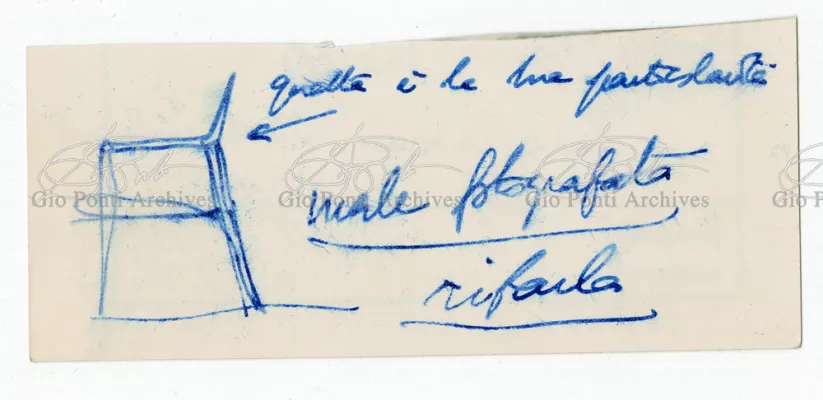 questa è la sua particolarità
male fotografata
rifarla
Gio Ponti Archives Gio Ponti Archives Gio Ponti Archives Gio Po